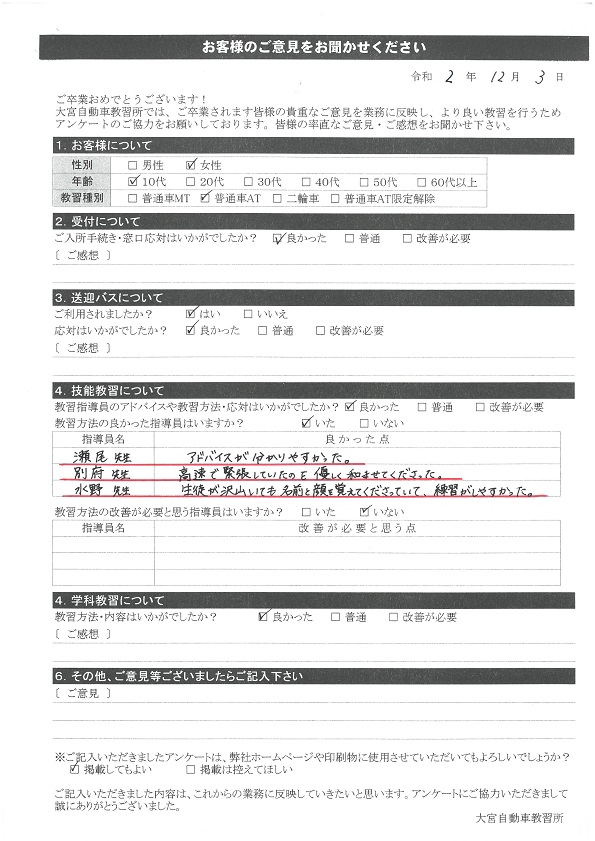 お客様のご意見をお聞かせください
令和 2 年 12 月 3 日
ご卒業おめでとうございます！
大宮自動車教習所では、ご卒業されます皆様の貴重なご意見を業務に反映し、より良い教習を行うため
アンケートのご協力をお願いしております。皆様の率直なご意見・ご感想をお聞かせ下さい。
1．お客様について
性別 □ 男性 ☑ 女性
年齢 ☑ 10代 □ 20代 □ 30代 □ 40代 □ 50代 □ 60代以上
教習種別 □ 普通車MT ☑ 普通車AT □ 二輪車 □ 普通車AT限定解除
2．受付について
ご入所手続き・窓口応対はいかがでしたか？ ☑ 良かった □ 普通 □ 改善が必要
〔 ご感想 〕
3．送迎バスについて
ご利用されましたか？ ☑ はい □ いいえ
応対はいかがでしたか？ ☑ 良かった □ 普通 □ 改善が必要
〔 ご感想 〕
4．技能教習について
教習指導員のアドバイスや教習方法・応対はいかがでしたか？ ☑ 良かった □ 普通 □ 改善が必要
教習方法の良かった指導員はいますか？ ☑ いた □ いない
指導員名 良かった点
瀬尾 先生 アドバイスが分かりやすかった。
別府 先生 高速で緊張していたのを優しく和ませてくださった。
水野 先生 生徒が沢山いても名前と顔を覚えてくださっていて、練習がしやすかった。
教習方法の改善が必要と思う指導員はいますか？ □ いた ☑ いない
指導員名 改善が必要と思う点
4．学科教習について
教習方法・内容はいかがでしたか？ ☑ 良かった □ 普通 □ 改善が必要
〔 ご感想 〕
6．その他、ご意見等ございましたらご記入下さい
〔 ご意見 〕
※ご記入いただきましたアンケートは、弊社ホームページや印刷物に使用させていただいてもよろしいでしょうか？
☑ 掲載してもよい □ 掲載は控えてほしい
ご記入いただきました内容は、これからの業務に反映していきたいと思います。アンケートにご協力いただきまして
誠にありがとうございました。
大宮自動車教習所